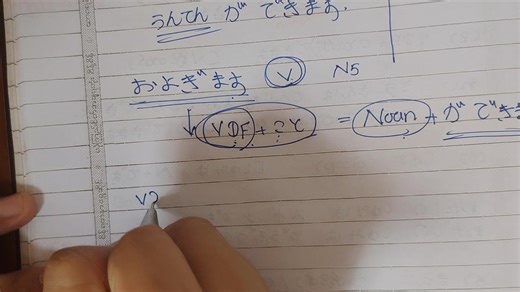 うんてん が できます.
およぎます V N5
VDF + こと = Noun + が できま
V